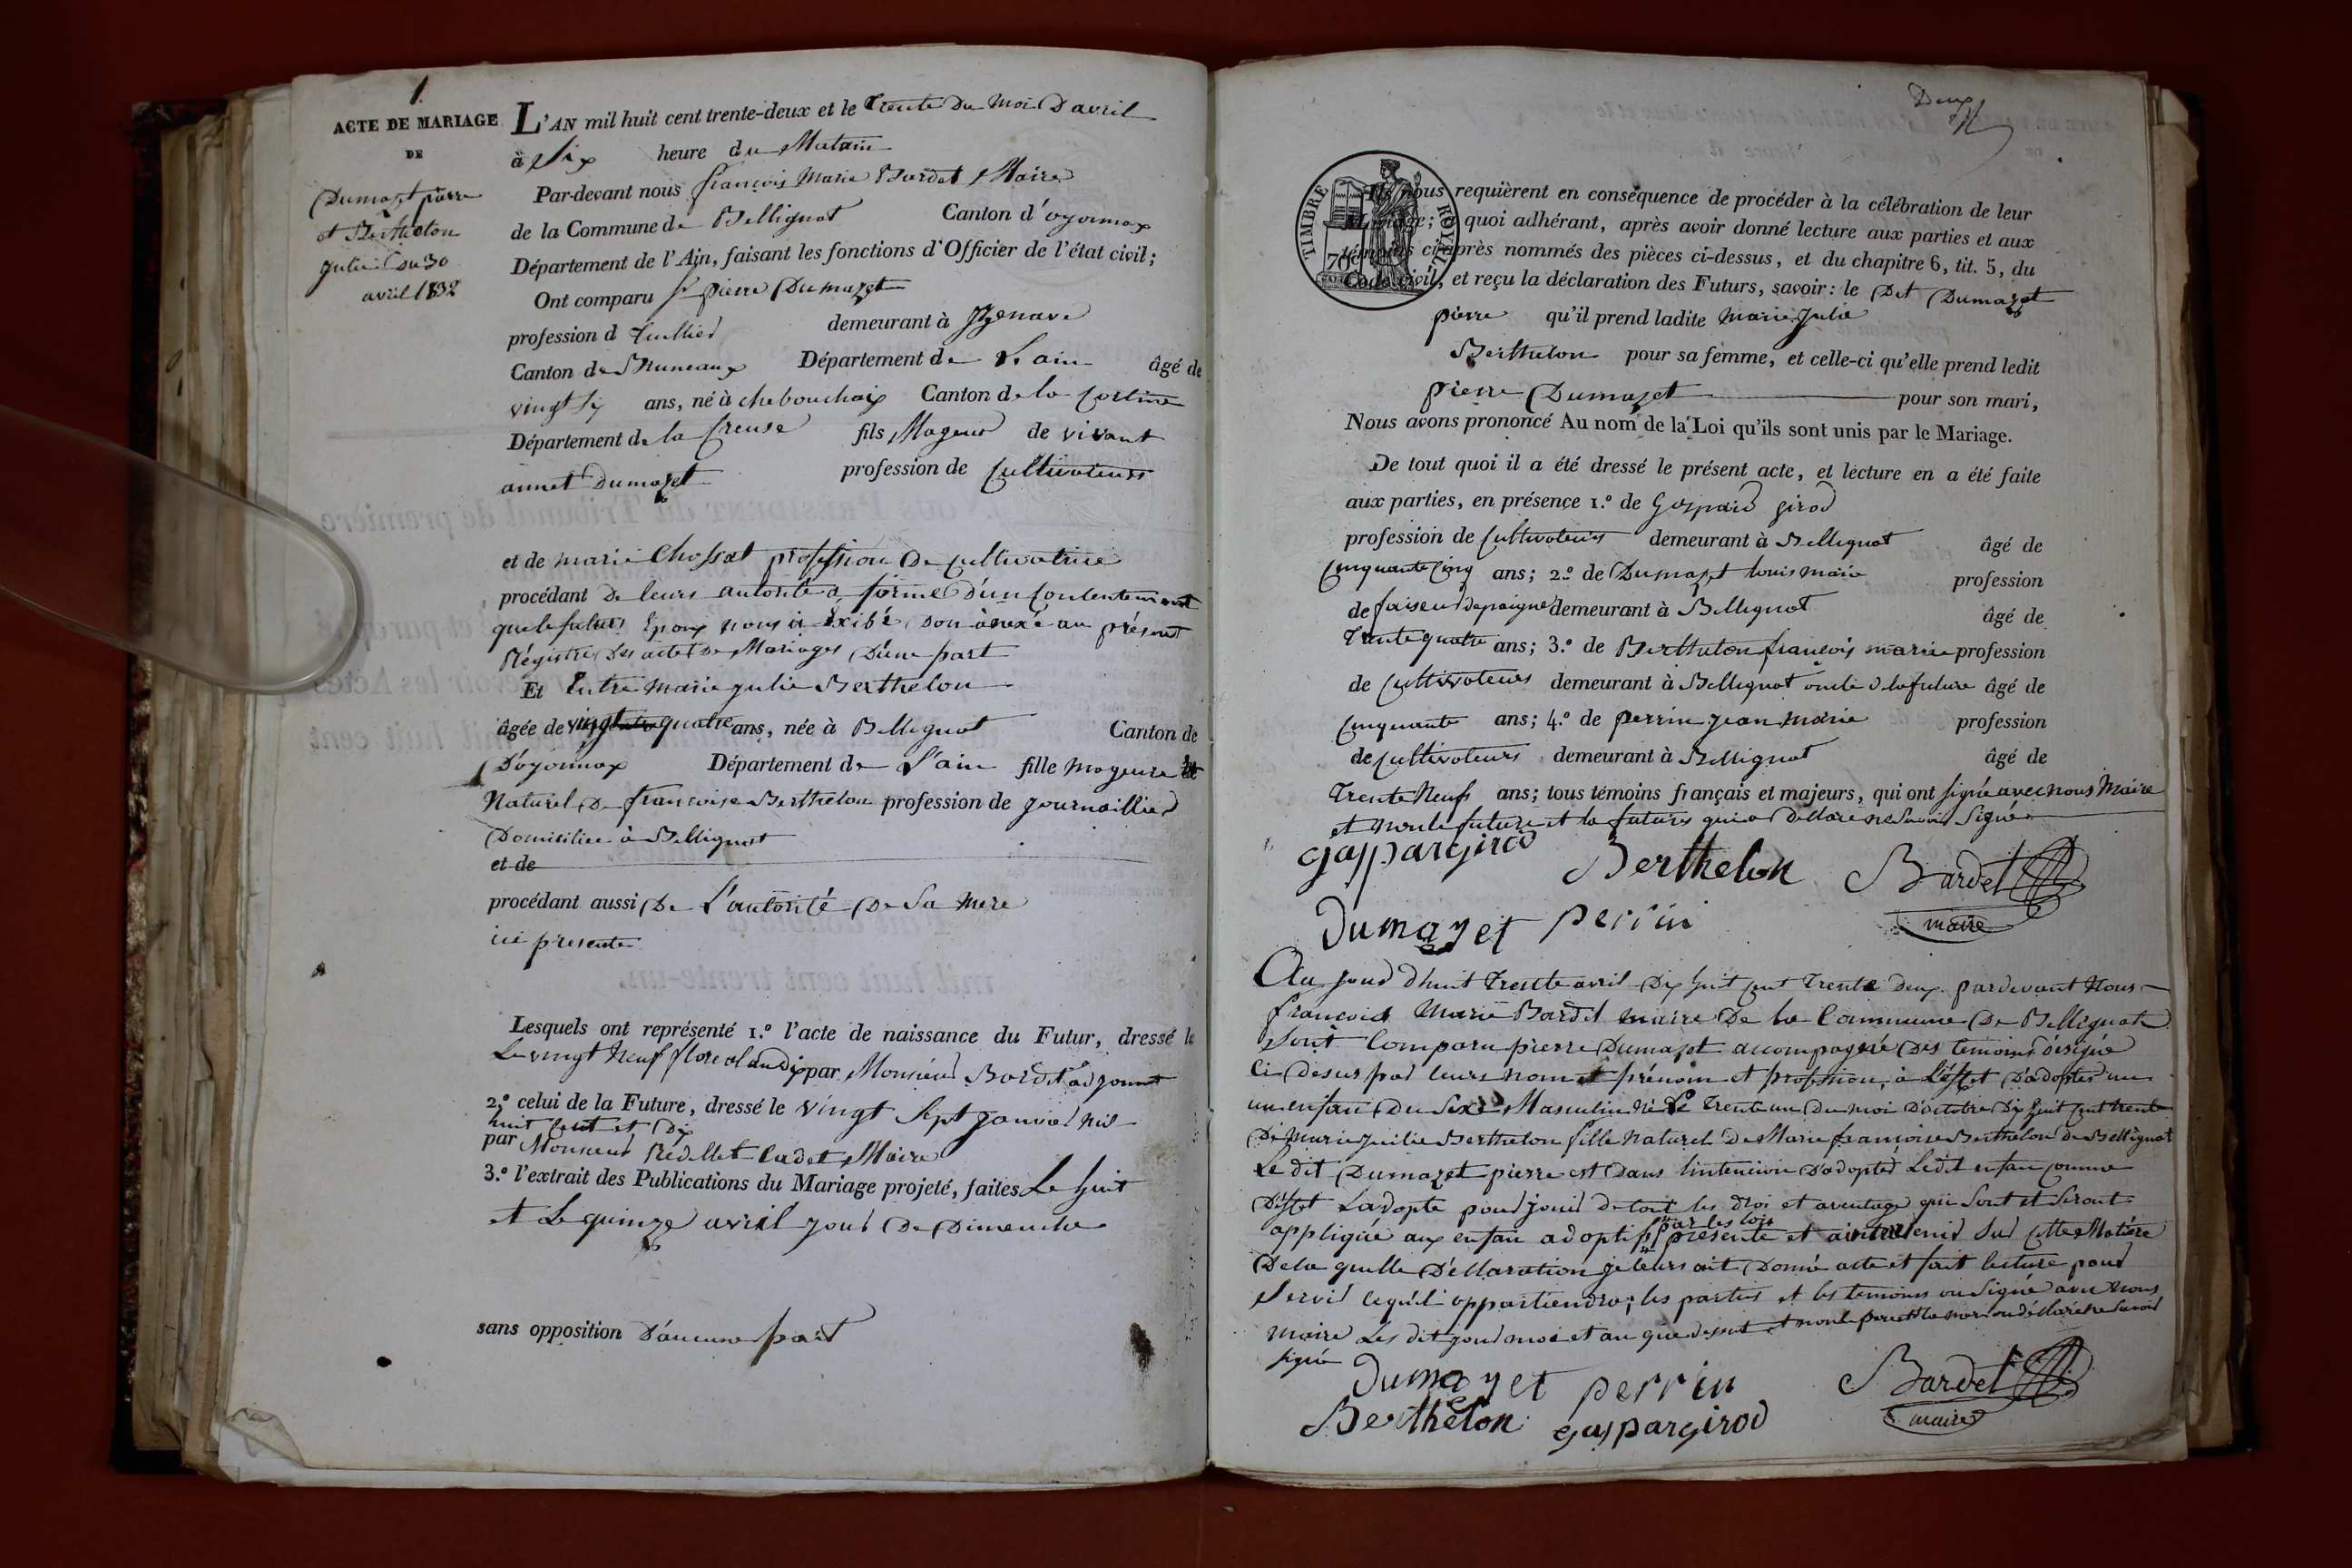 1.
ACTE DE MARIAGE
DE
Dumazet pierre
et Berthelon
Julie du 30
avril 1832
L'AN mil huit cent trente-deux et le trente du moi D'avril
à Six heure du Matain
Par-devant nous françois Marie Bardet Maire
de la Commune de Bellignat Canton d'oyonnax
Département de l'Ain, faisant les fonctions d'Officier de l'état civil;
Ont comparu Sr pierre Dumazet
profession d demeurant à Izenave
Canton de Département de L'ain âgé de
vingt Six ans, né à chebouchaix Canton de la Cortine
Département de la Creuse fils Mageur de vivant
annet Dumazet profession de Cultivateurs
et de marie Chossat profession De Cultivatrice
procédant de leurs autorité a forme D'un Contentement
que le futur Epoux nous a Exibé Don anexé au présent
Régistre Des acte De Mariages D'une part
Et Entre marie julie Berthelon
âgée de vingt quatre ans, née à Bellignat Canton de
D'oyonnax Département de L'ain fille mageure et
Naturel De françoise Berthelon profession de journaillier
Domiciliée à Bellignat
et de
procédant aussi De L'autorité De Sa mere
ici presente
Lesquels ont représenté 1.º l'acte de naissance du Futur, dressé le
Le vingt neuf floreal an dix par Monsieur Bordet adjoint
2.º celui de la Future, dressé le vingt Sept janvier mil
huit Cent et Dix
par Monsieur Rédellet Cadet Maire
3.º l'extrait des Publications du Mariage projeté, faites Le huit
et Le quinze avril jour De Dimenche
sans opposition D'aucune part
Deux
TIMBRE ROYAL
70c
Ils nous requièrent en conséquence de procéder à la célébration de leur
Mariage; à quoi adhérant, après avoir donné lecture aux parties et aux
témoins ci-après nommés des pièces ci-dessus, et du chapitre 6, tit. 5, du
Code civil, et reçu la déclaration des Futurs, savoir: le Dit Dumazet
pierre qu'il prend ladite marie julie
Berthelon pour sa femme, et celle-ci qu'elle prend ledit
pierre Dumazet pour son mari,
Nous avons prononcé Au nom de la Loi qu'ils sont unis par le Mariage.
De tout quoi il a été dressé le présent acte, et lecture en a été faite
aux parties, en présence 1.º de Gaspard girod
profession de Cultivateurs demeurant à Bellignat âgé de
Cinquante Cinq ans; 2.º de Dumazet louis marie profession
de faiseur depaigne demeurant à Bellignat âgé de
Trante quatre ans; 3.º de Berthelon françois marie profession
de Cultivateurs demeurant à Bellignat oncle d la future âgé de
Cinquante ans; 4.º de perrin jean marie profession
de Cultivateurs demeurant à Bellignat âgé de
Trente Neuf ans; tous témoins français et majeurs, qui ont signée avec nous Maire
et non le future et la future qui a Déllaré ne Savoir Signé
gaspargirod Berthelon Bardet
maire
Dumazet perrin
Au jour dhuit Trente avril Dix huit Cent Trente Deux pardevant Nous
françois Marie Bardet maire De la Commune De Bellignat
Sont Comparu pierre Dumazet accompagné Des temoins désignée
Ci desus par leurs nom et prénom et profession, à L'éffet D'adopter un
un enfan Du Sexe Masculin né Le Trente un Du moi D'octobre Dix huit Cent trente
De Marie julie Berthelon fille Naturel De Marie francoise Berthelon De Bellignat
Le dit Dumazet pierre est Dans lintencion D'adopter Ledit enfan Comme
Déffet Ladopte pour jouir de tout les droi et aventage qui Sont et Seront
appliquée aux enfan adoptif par les lois présente et aintervenir Sur Cette Matiére
De la quelle Déllaration je leurs ait Donné acte et fait lecture pour
Servir Ce quil appartiendra; les parties et les temoins on Signée avec Nous
Maire Les dit jour moi et an que dessut et non le pere et la mere on déllaré ne Savoir
signée
Dumazet perrin Bardet
maire
Berthelon gaspargirod